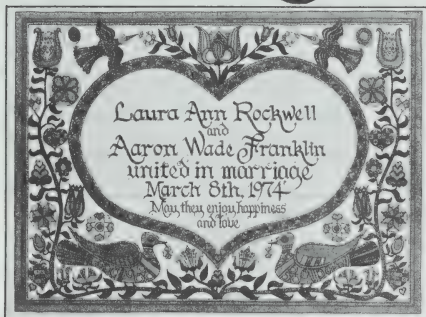 Laura Ann Rockwell
and
Aaron Wade Franklin
united in marriage
March 8th, 1974
May they enjoy happiness
and love